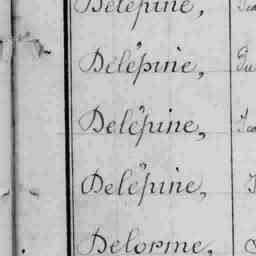 Delépine,
Delépine,
Delépine,
Delépine,
Delorme,